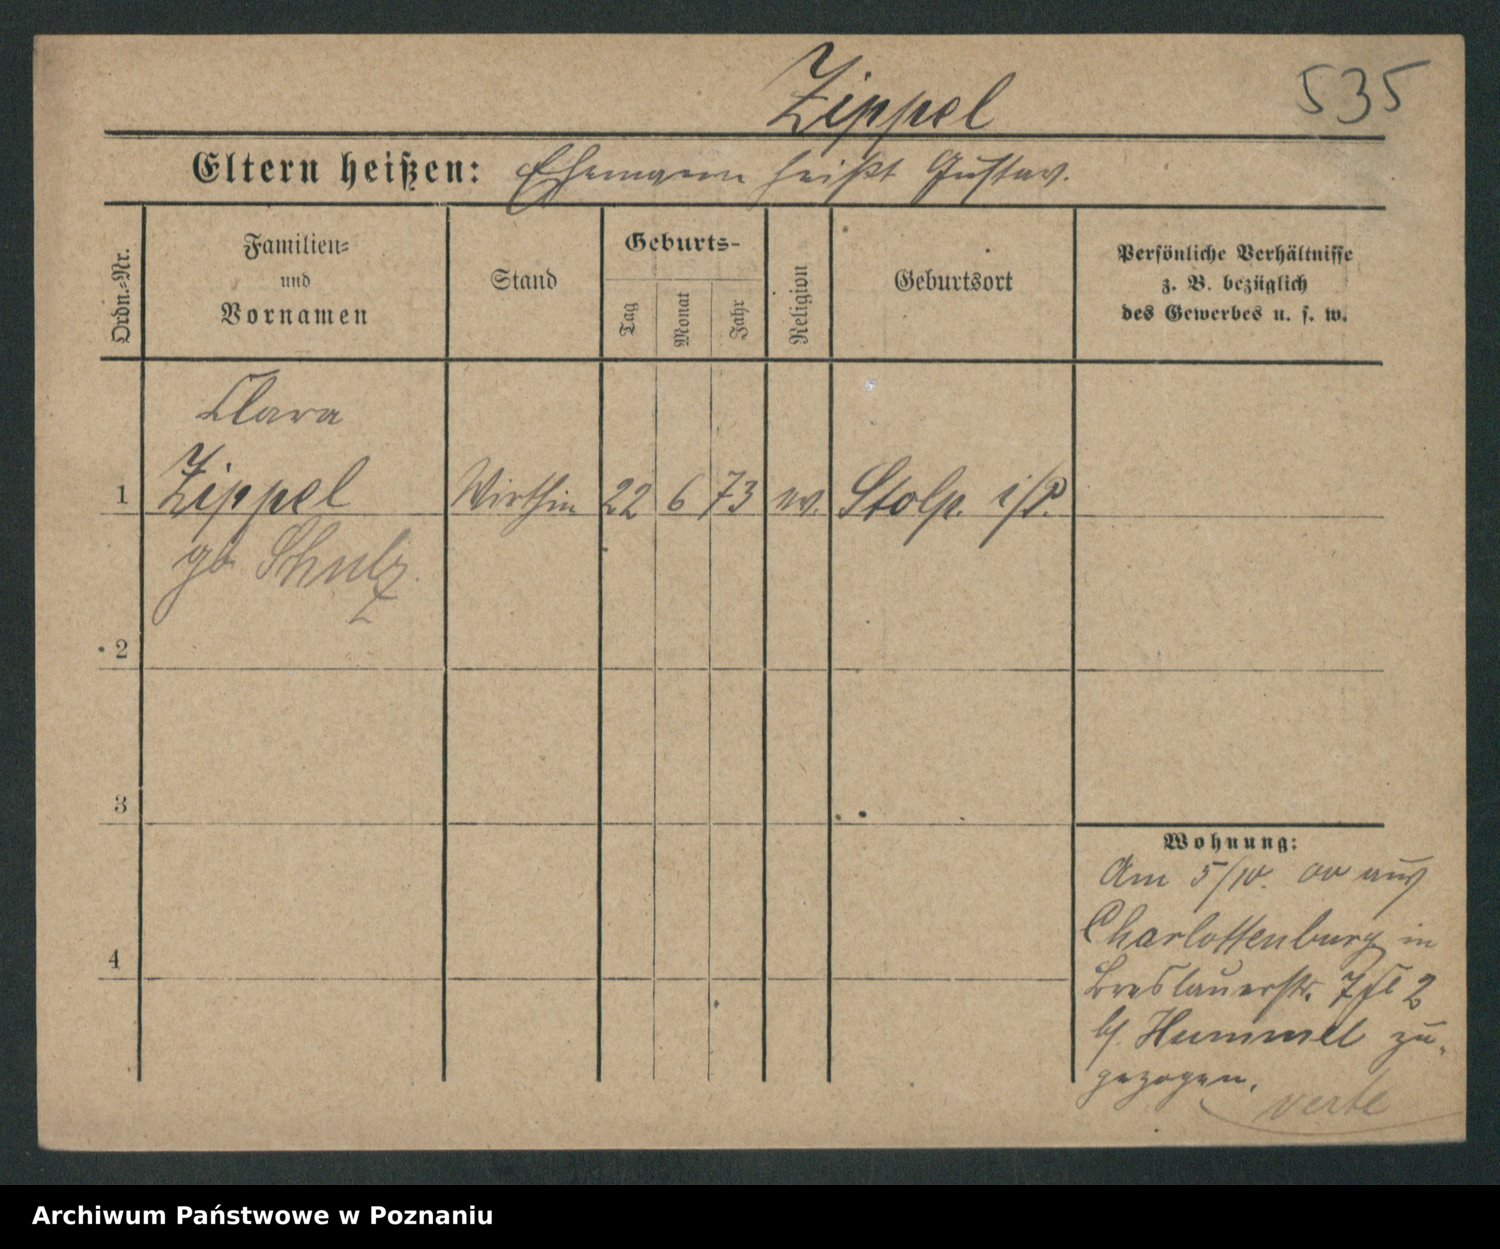 Zippel
535
Eltern heißen: Ehemann heißt Gustav.
Ordn.=Nr.
Familien=
und
Vornamen
Stand
Geburts-
Tag
Monat
Jahr
Religion
Geburtsort
Persönliche Verhältnisse
z. B. bezüglich
des Gewerbes u. s. w.
Clara
1 Zippel Wirthin 22 6 73 ev. Stolp. i/P.
gb Schulz.
2
3
4
Wohnung:
Am 5/10. 00 aus
Charlottenburg in
Breslauerstr. 7 II
b/ Hummel zu-
gezogen.
verte
Archiwum Państwowe w Poznaniu